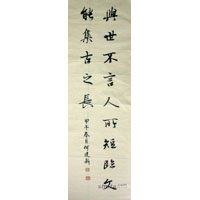 與世不言人所短臨文
能集古之長
甲午春月